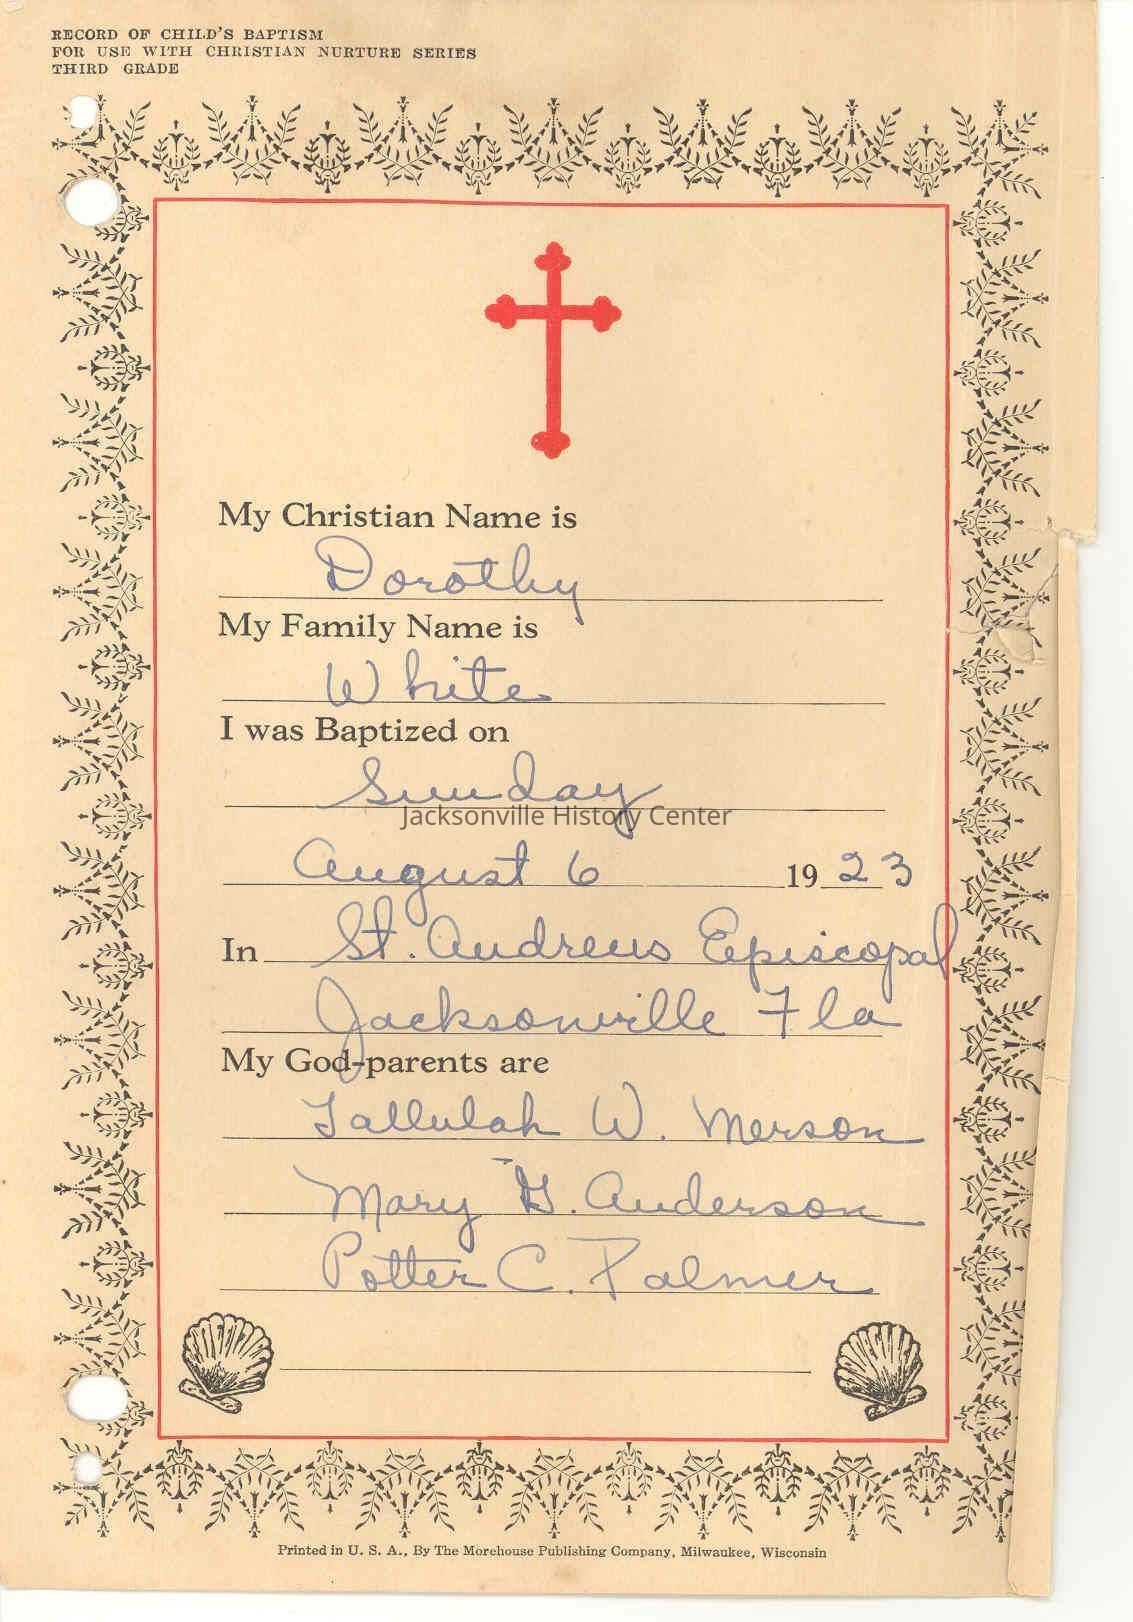 RECORD OF CHILD'S BAPTISM
FOR USE WITH CHRISTIAN NURTURE SERIES
THIRD GRADE
My Christian Name is
Dorothy
My Family Name is
White
I was Baptized on
Sunday
Jacksonville History Center
August 6 1923
In St. Andrews Episcopal
Jacksonville Fla
My God-parents are
Tallulah W. Merson
Mary G. Anderson
Potter C. Palmer
Printed in U. S. A., By The Morehouse Publishing Company, Milwaukee, Wisconsin